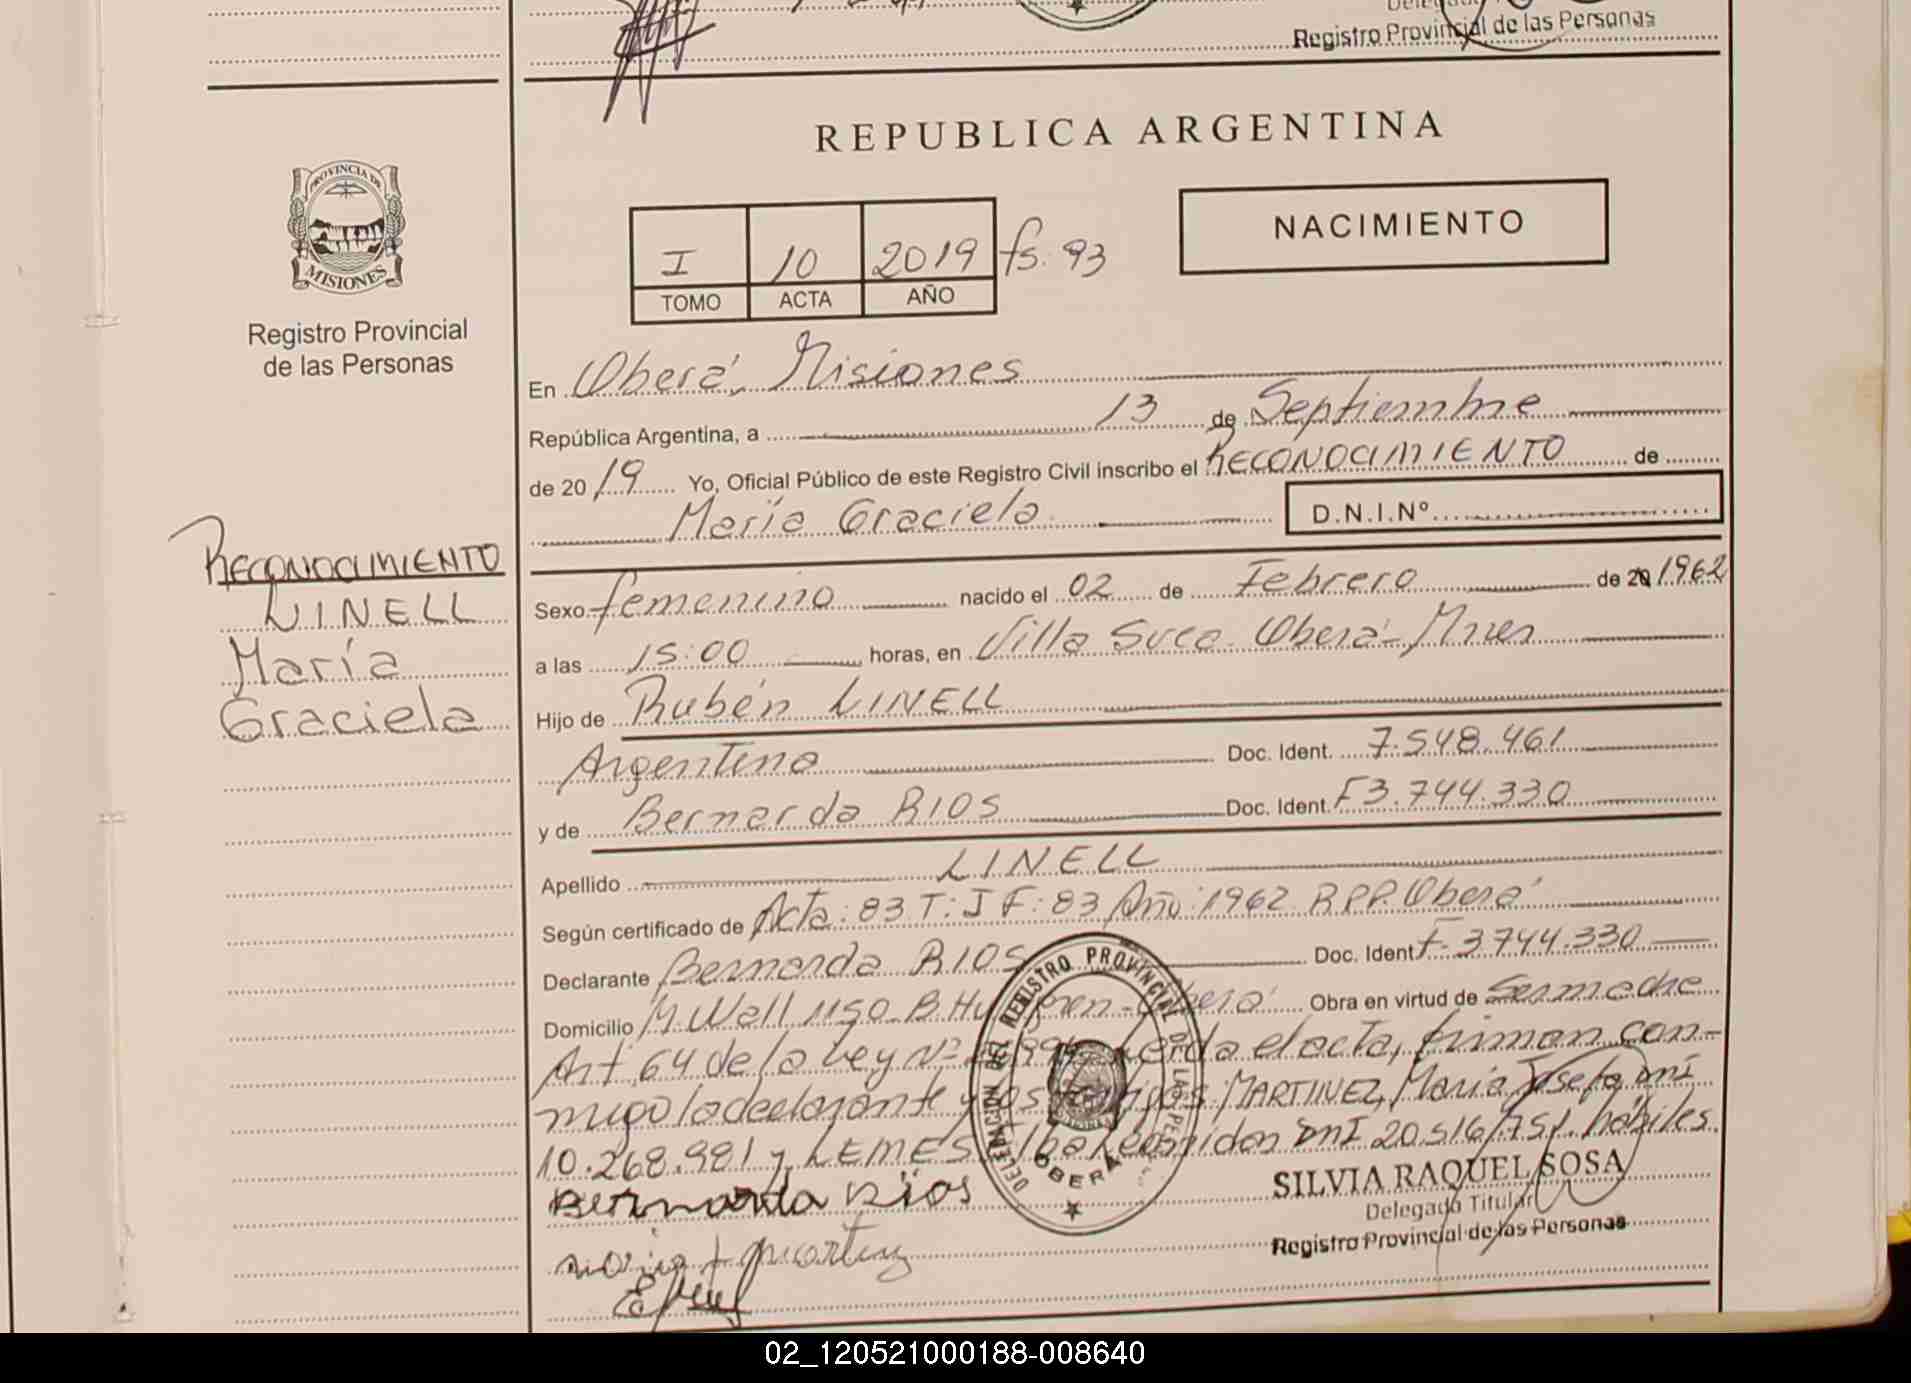 Registro Provincial de las Personas
REPUBLICA ARGENTINA
PROVINCIA DE
MISIONES
Registro Provincial
de las Personas
NACIMIENTO
I 10 2019 fs. 93
TOMO ACTA AÑO
En Oberá, Misiones
República Argentina, a 13 de Septiembre
de 2019 Yo, Oficial Público de este Registro Civil inscribo el RECONOCIMIENTO de
María Graciela D.N.I.Nº
RECONOCIMIENTO
LINELL
María
Graciela
Sexo femenino nacido el 02 de Febrero de 20 1962
a las 15:00 horas, en Villa Svea Oberá - Mnes
Hijo de Rubén LINELL
Argentina Doc. Ident. 7.548.461
y de Bernarda RIOS Doc. Ident. F3.744.330
Apellido LINELL
Según certificado de Acta: 83 T: I F: 83 Año: 1962 R.P.P. Oberá
Declarante Bernarda RIOS Doc. Ident F- 3.744.330
Domicilio Oberá Obra en virtud de Ser madre
Art 64 de la Ley Nº el acta, firman con-
migo la declarante y los testigos MARTINEZ, María Josefa DNI
10.268.981 y LEMES DNI 20.516.751. hábiles
DELEGACION DEL REGISTRO PROVINCIAL DE LAS
OBERA
Bernarda Rios
SILVIA RAQUEL SOSA
Delegada Titular
Registro Provincial de las Personas
02_120521000188-008640